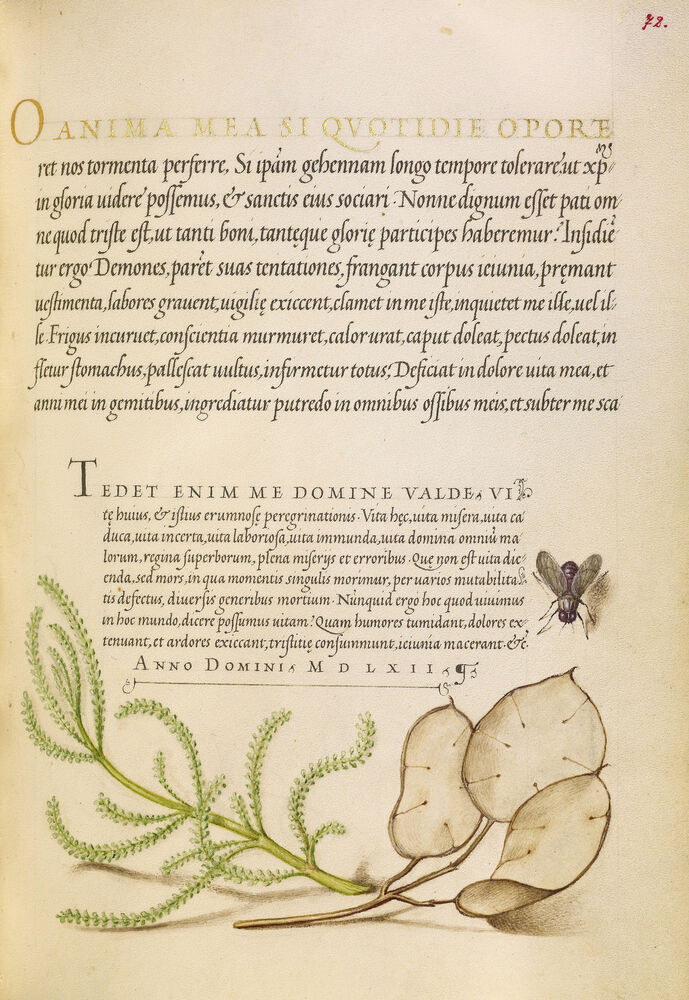 72.
O ANIMA MEA SI QVOTIDIE OPORE
ret nos tormenta perferre, Si ipām gehennam longo tempore tolerare: ut xp̄
in gloria uidere possemus, & sanctis eius sociari. Nonne dignum esset pati om-
ne quod triste est, ut tanti boni, tantęque glorię participes haberemur? Insidiē
tur ergo Demones, parēt suas tentationes, frangant corpus ieiunia, pręmant
uestimenta, labores grauent, uigilię exiccent, clamet in me iste, inquietet me ille, uel il-
le. Frigus incuruet, conscientia murmuret, calor urat, caput doleat, pectus doleat, in
fletur stomachus, pallescat uultus, infirmetur totus: Deficiat in dolore uita mea, et
anni mei in gemitibus, ingrediatur putredo in omnibus ossibus meis, et subter me sca
TEDET ENIM ME DOMINE VALDE, VI
tę huius, & istius erumnosę peregrinationis. Vita hęc, uita misera, uita ca
duca, uita incerta, uita laboriosa, uita immunda, uita domina omniū ma
lorum, regina superborum, plena miserijs et erroribus. Quę non est uita dic-
enda, sed mors, in qua momentis singulis morimur, per varios mutabilita
tis defectus, diuersis generibus mortium. Nūnquid ergo hoc quod uiuimus
in hoc mundo, dicere possumus uitam? Quam humores tumidant, dolores ex-
tenuant, et ardores exiccant, tristitię consummunt, ieiunia macerant. &c.
ANNO DOMINI, M D LXII